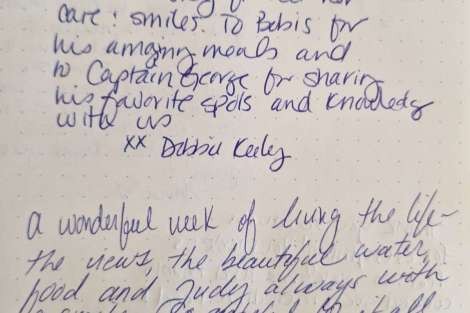 care & smiles. To Babis for
his amazing meals and
to Captain George for sharing
his favorite spots and knowledge
with us
xx Debbie Keeley
a wonderful week of living the life -
the views, the beautiful water,
food and Judy always with